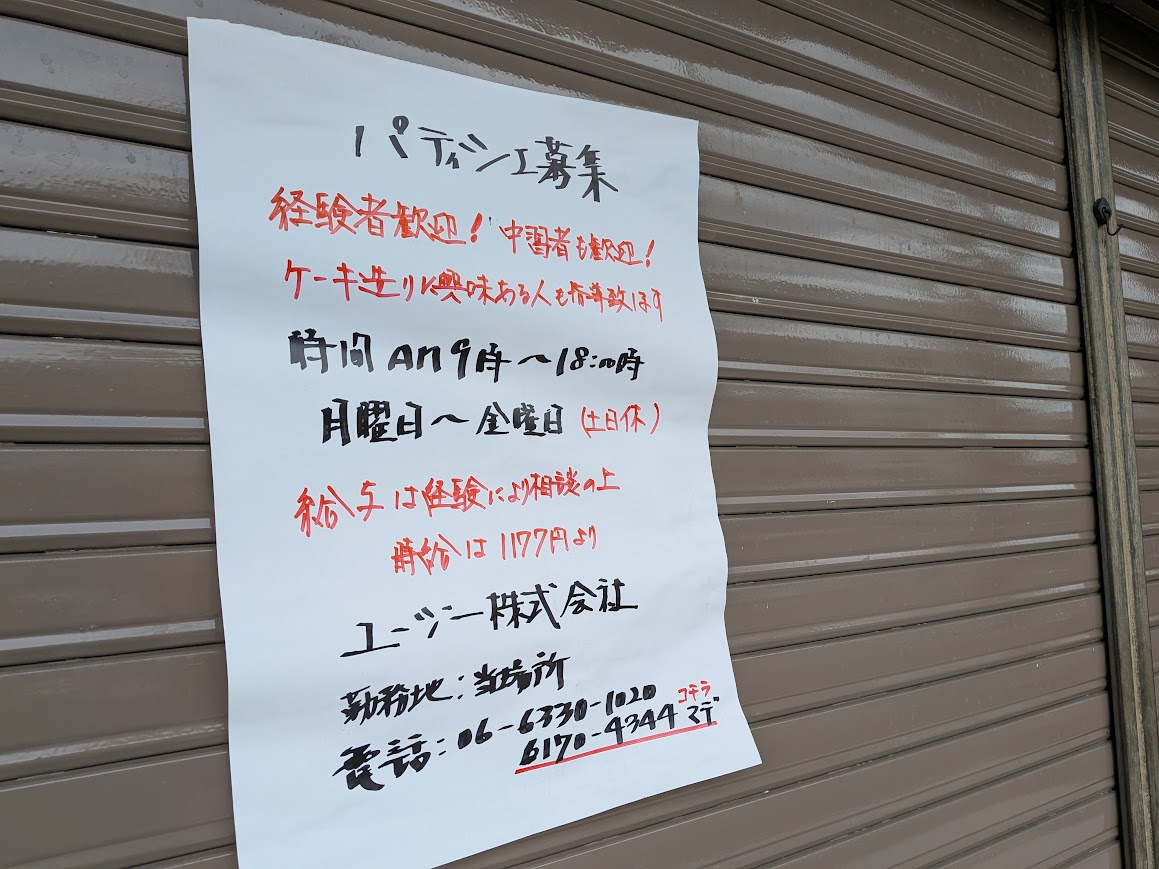 パティシエ募集
経験者歓迎! 中習者も歓迎!
ケーキ造りに興味ある人も指導致します
時間 AM 9時〜18:00時
月曜日〜金曜日(土日休)
給与は経験により相談の上
時給は1177円より
ユーシー株式会社
勤務地:当場所
電話:06-6330-1020
6170-4344 コチラマデ